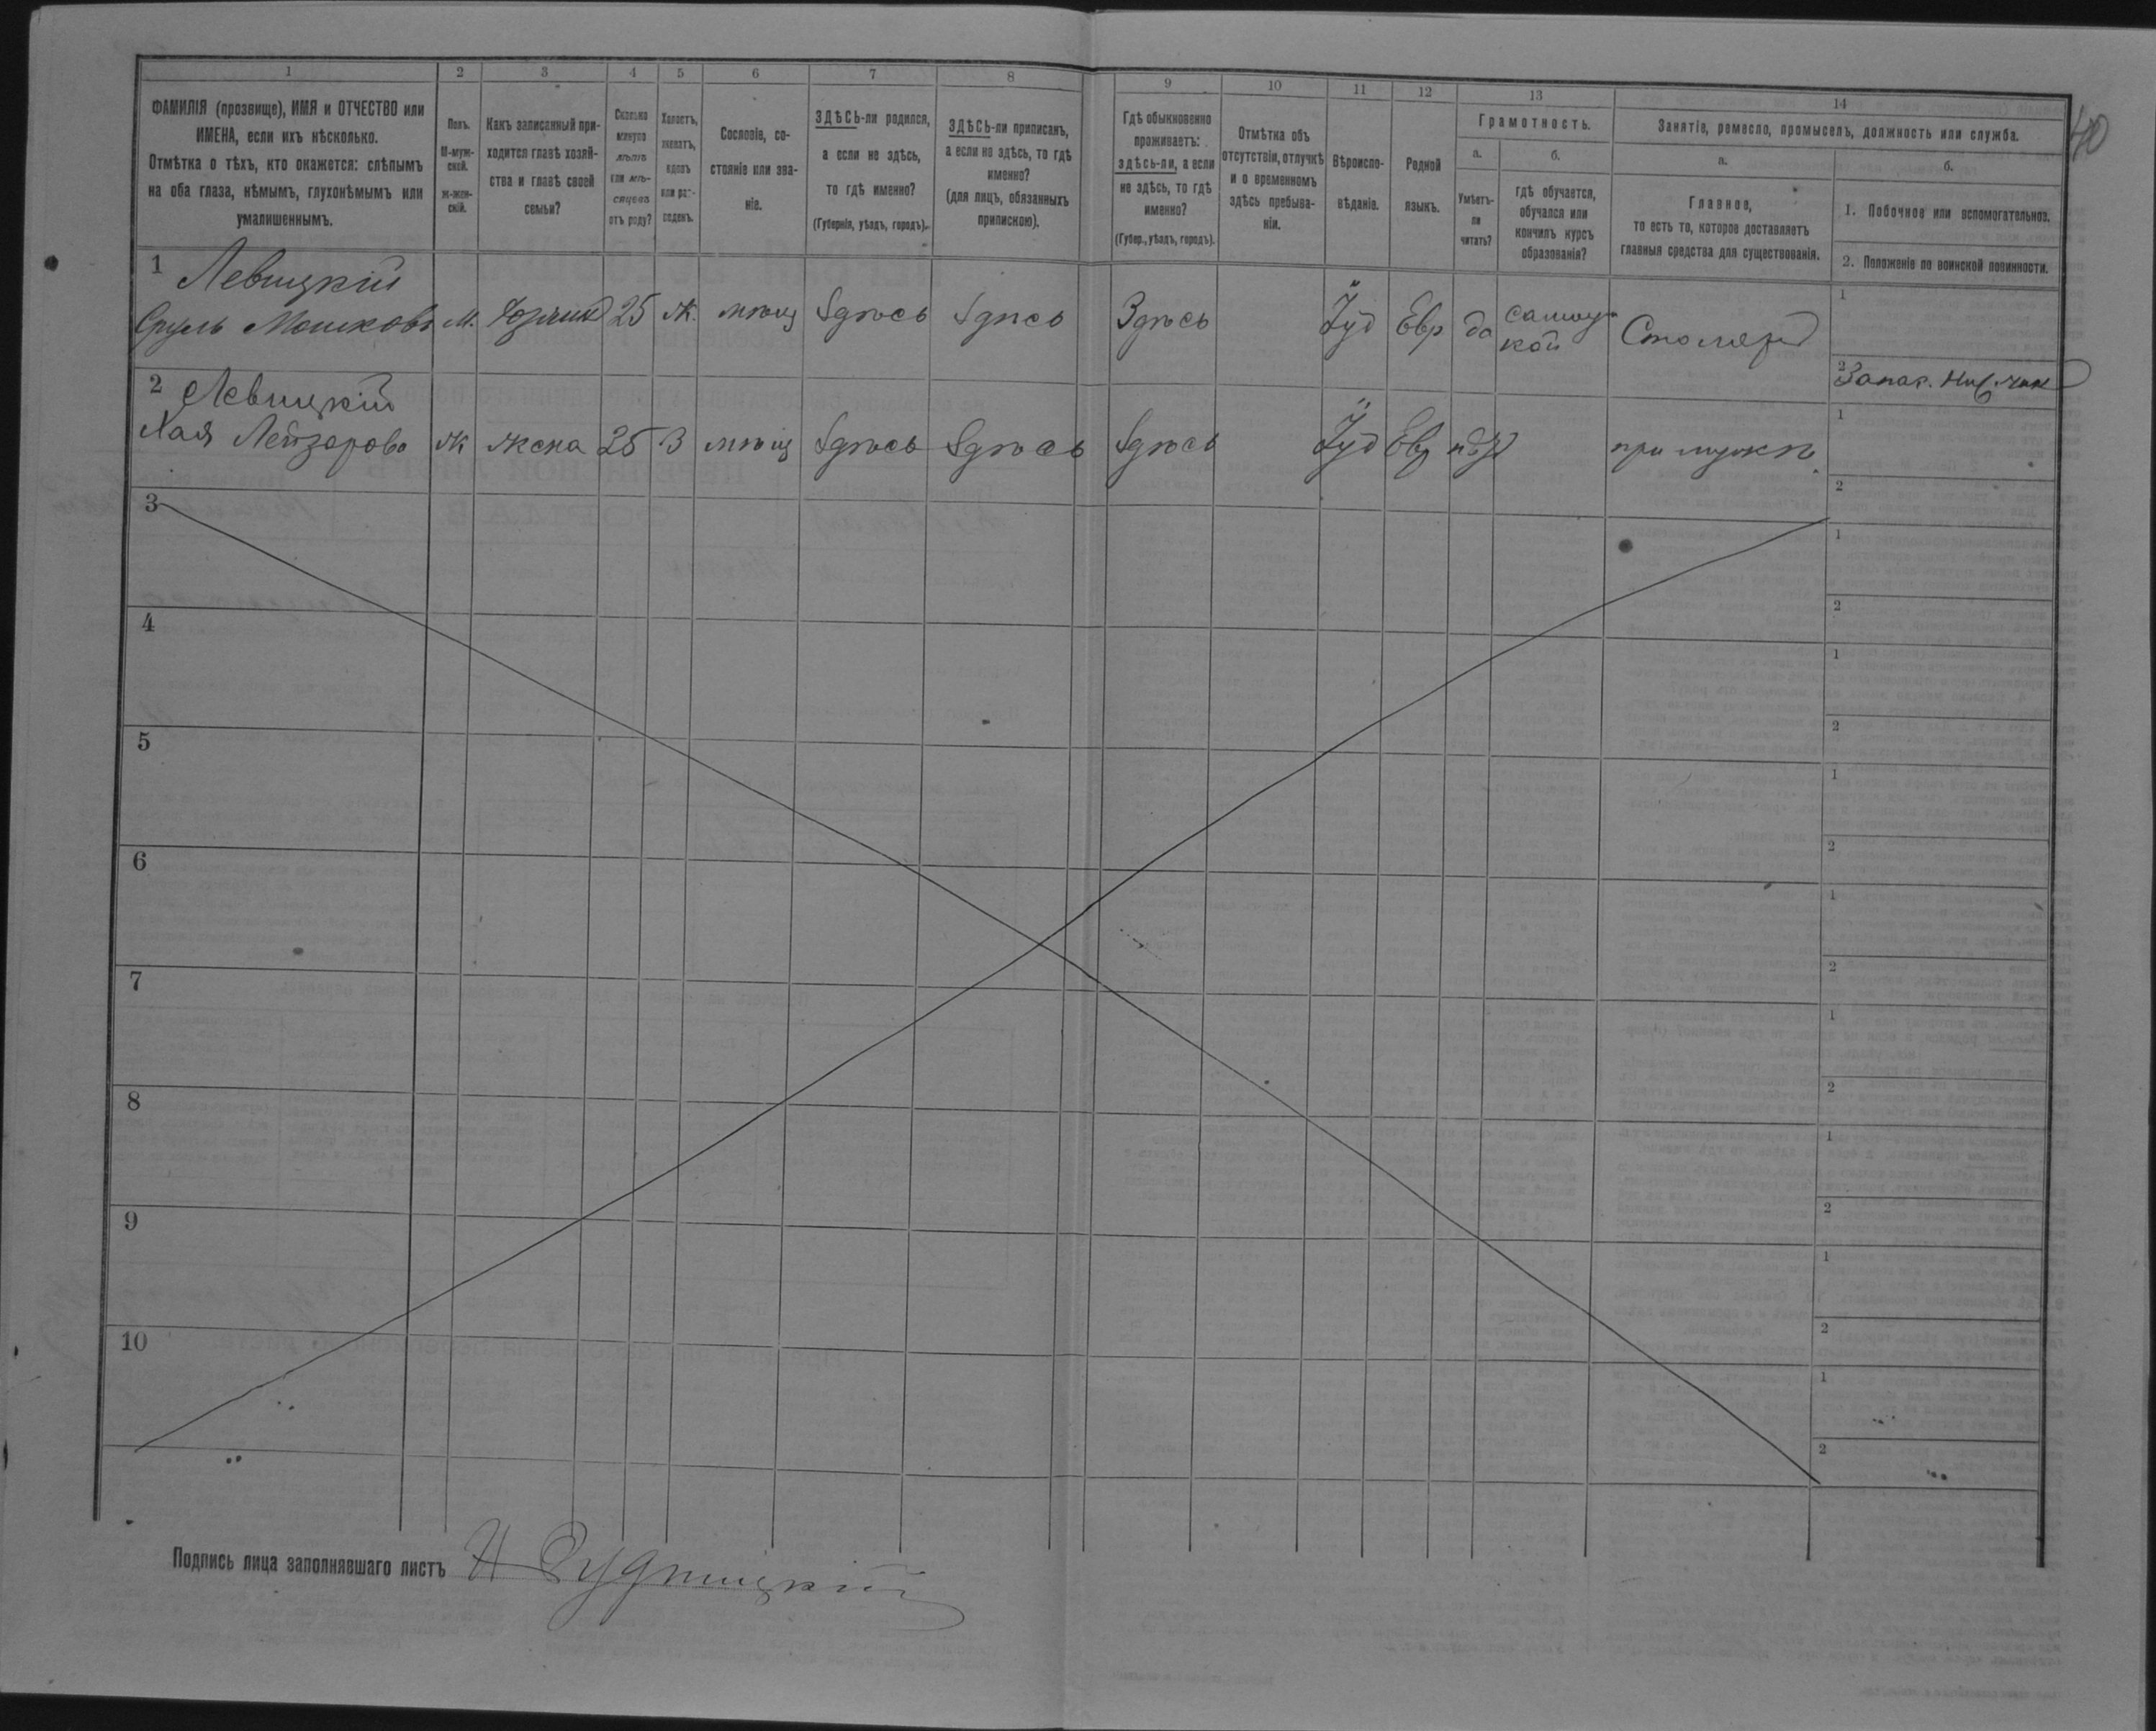 1 2 3 4 5 6 7 8 9 10 11 12 13 14
40
ФАМИЛІЯ (прозвище), ИМЯ и ОТЧЕСТВО или
ИМЕНА, если ихъ нѣсколько.
Отмѣтка о тѣхъ, кто окажется: слѣпымъ
на оба глаза, нѣмымъ, глухонѣмымъ или
умалишеннымъ.
Полъ.
М-муж-
ской.
ж-жен-
скій.
Какъ записанный при-
ходится главѣ хозяй-
ства и главѣ своей
семьи?
Сколько
минуло
лѣтъ
или мѣ-
сяцевъ
отъ роду?
Холостъ,
женатъ,
вдовъ
или раз-
веденъ.
Сословіе, со-
стояніе или зва-
ніе.
ЗДѢСЬ-ли родился,
а если не здѣсь,
то гдѣ именно?
(Губернія, уѣздъ, городъ).
ЗДѢСЬ-ли приписанъ,
а если не здѣсь, то гдѣ
именно?
(для лицъ, обязанныхъ
припискою).
Гдѣ обыкновенно
проживаетъ:
здѣсь-ли, а если
не здѣсь, то гдѣ
именно?
(Губер., уѣздъ, городъ).
Отмѣтка объ
отсутствіи, отлучкѣ
и о временномъ
здѣсь пребыва-
ніи.
Вѣроиспо-
вѣданіе.
Родной
языкъ.
Грамотность.
а.
Умѣетъ-
ли
читать?
б.
гдѣ обучается,
обучался или
кончилъ курсъ
образованія?
Занятіе, ремесло, промыселъ, должность или служба.
а.
Главное,
то есть то, которое доставляетъ
главныя средства для существованія.
б.
1. Побочное или вспомогательное.
2. Положеніе по воинской повинности.
1 Левицкій
Сруль Мошковъ М. 25 Ж. мѣщ Здѣсь Здѣсь Здѣсь Іуд Евр да самоу-
кой Столяръ 1
2 Запас. Ниж. чин
2 Левицкій
Хая Лейзерова Ж жена 25 З мѣщ Здѣсь Здѣсь Здѣсь Іуд Евр при мужѣ 1
2
3 1
2
4 1
2
5 1
2
6 1
2
7 1
2
8 1
2
9 1
2
10 1
2
Подпись лица заполнявшаго листъ